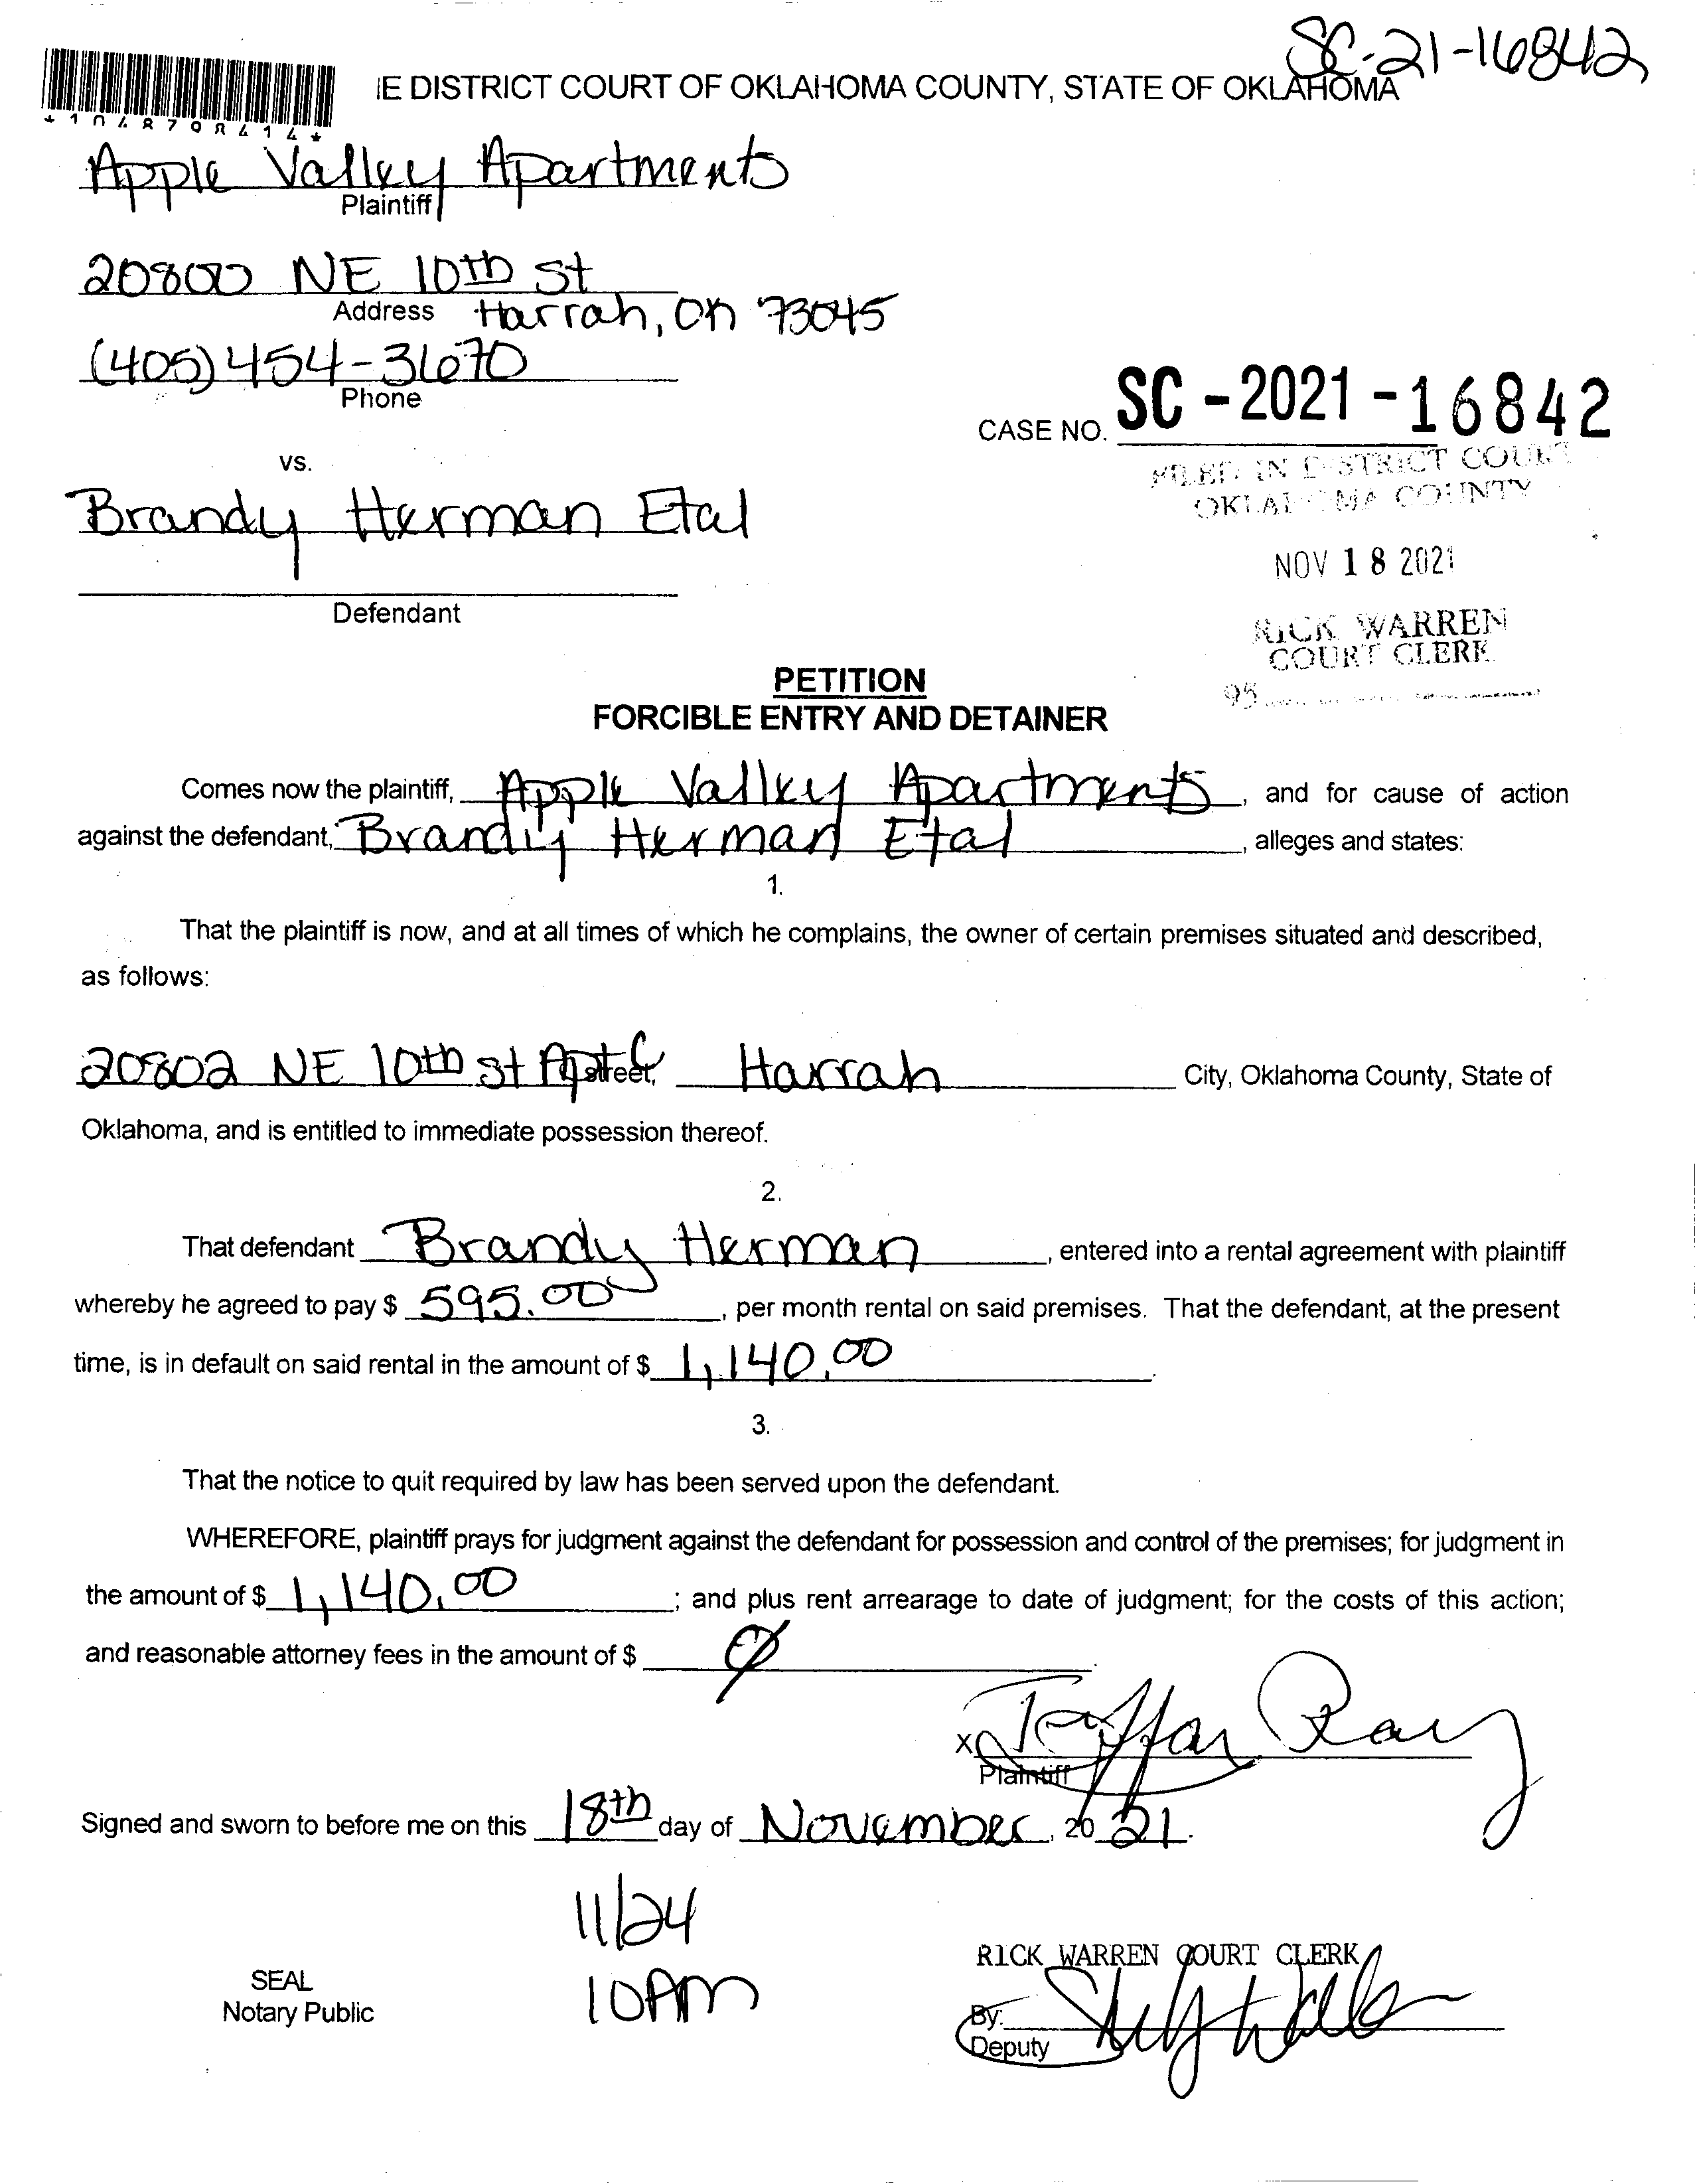 SC-21-16842
IE DISTRICT COURT OF OKLAHOMA COUNTY, STATE OF OKLAHOMA
*1048798414*
Apple Valley Apartments
Plaintiff
20800 NE 10th St
Address Harrah, OK 73045
(405) 454-3670
Phone
CASE NO. SC-2021-16842
vs.
FILED IN DISTRICT COURT
OKLAHOMA COUNTY
Brandy Herman Etal
NOV 18 2021
Defendant
RICK WARREN
COURT CLERK
95
PETITION
FORCIBLE ENTRY AND DETAINER
Comes now the plaintiff, Apple Valley Apartments, and for cause of action
against the defendant, Brandy Herman Etal, alleges and states:
1.
That the plaintiff is now, and at all times of which he complains, the owner of certain premises situated and described,
as follows:
20802 NE 10th St Apt C Street, Harrah City, Oklahoma County, State of
Oklahoma, and is entitled to immediate possession thereof.
2.
That defendant Brandy Herman, entered into a rental agreement with plaintiff
whereby he agreed to pay $ 595.00, per month rental on said premises. That the defendant, at the present
time, is in default on said rental in the amount of $ 1,140.00.
3.
That the notice to quit required by law has been served upon the defendant.
WHEREFORE, plaintiff prays for judgment against the defendant for possession and control of the premises; for judgment in
the amount of $ 1,140.00; and plus rent arrearage to date of judgment; for the costs of this action;
and reasonable attorney fees in the amount of $ 0.
X
Plaintiff
Signed and sworn to before me on this 18th day of November, 2021.
11/24
10AM
RICK WARREN COURT CLERK
SEAL
Notary Public
By:
Deputy